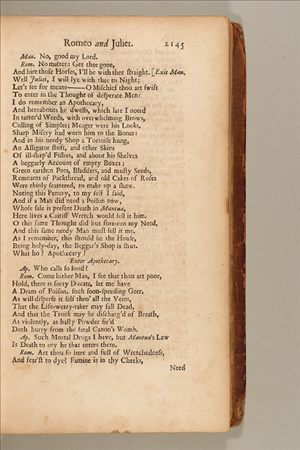 Romeo and Juliet. 2145
Man. No, good my Lord.
Rom. No matter: Get thee gone,
And hire those Horses, I'll be with thee straight. [Exit Man.
Well Juliet, I will lye with thee to Night;
Let's see for means—O Mischief thou art swift
To enter in the Thought of desperate Men!
I do remember an Apothecary,
And hereabouts he dwells, which late I noted
In tatter'd Weeds, with overwhelming Brows,
Culling of Simples; Meager were his Looks,
Sharp Misery had worn him to the Bones:
And in his needy Shop a Tortoise hung,
An Alligator stuft, and other Skins
Of ill-shap'd Fishes, and about his Shelves
A beggarly Account of empty Boxes;
Green earthen Pots, Bladders, and musty Seeds,
Remnants of Packthread, and old Cakes of Roses
Were thinly scatter'd, to make up a shew.
Noting this Penury, to my self I said,
And if a Man did need a Poison now,
Whose sale is present Death in Mantua,
Here lives a Caitiff Wretch would sell it him.
O this same Thought did but fore-run my Need,
And this same needy Man must sell it me.
As I remember, this should be the House,
Being holy-day, the Beggar's Shop is shut.
What ho! Apothecary!
Enter Apothecary.
Ap. Who calls so loud?
Rom. Come hither Man, I see that thou art poor,
Hold, there is forty Ducats, let me have
A Dram of Poison, such soon-speeding Geer,
As will disperse it self thro' all the Veins,
That the Life-weary-taker may fall Dead,
And that the Trunk may be discharg'd of Breath,
As violently, as hasty Powder fir'd
Doth hurry from the fatal Canon's Womb.
Ap. Such Mortal Drugs I have, but Mantua's Law
Is Death to any he that utters them.
Rom. Art thou so bare and full of Wretchedness,
And fear'st to dye? Famine is in thy Cheeks,
Need